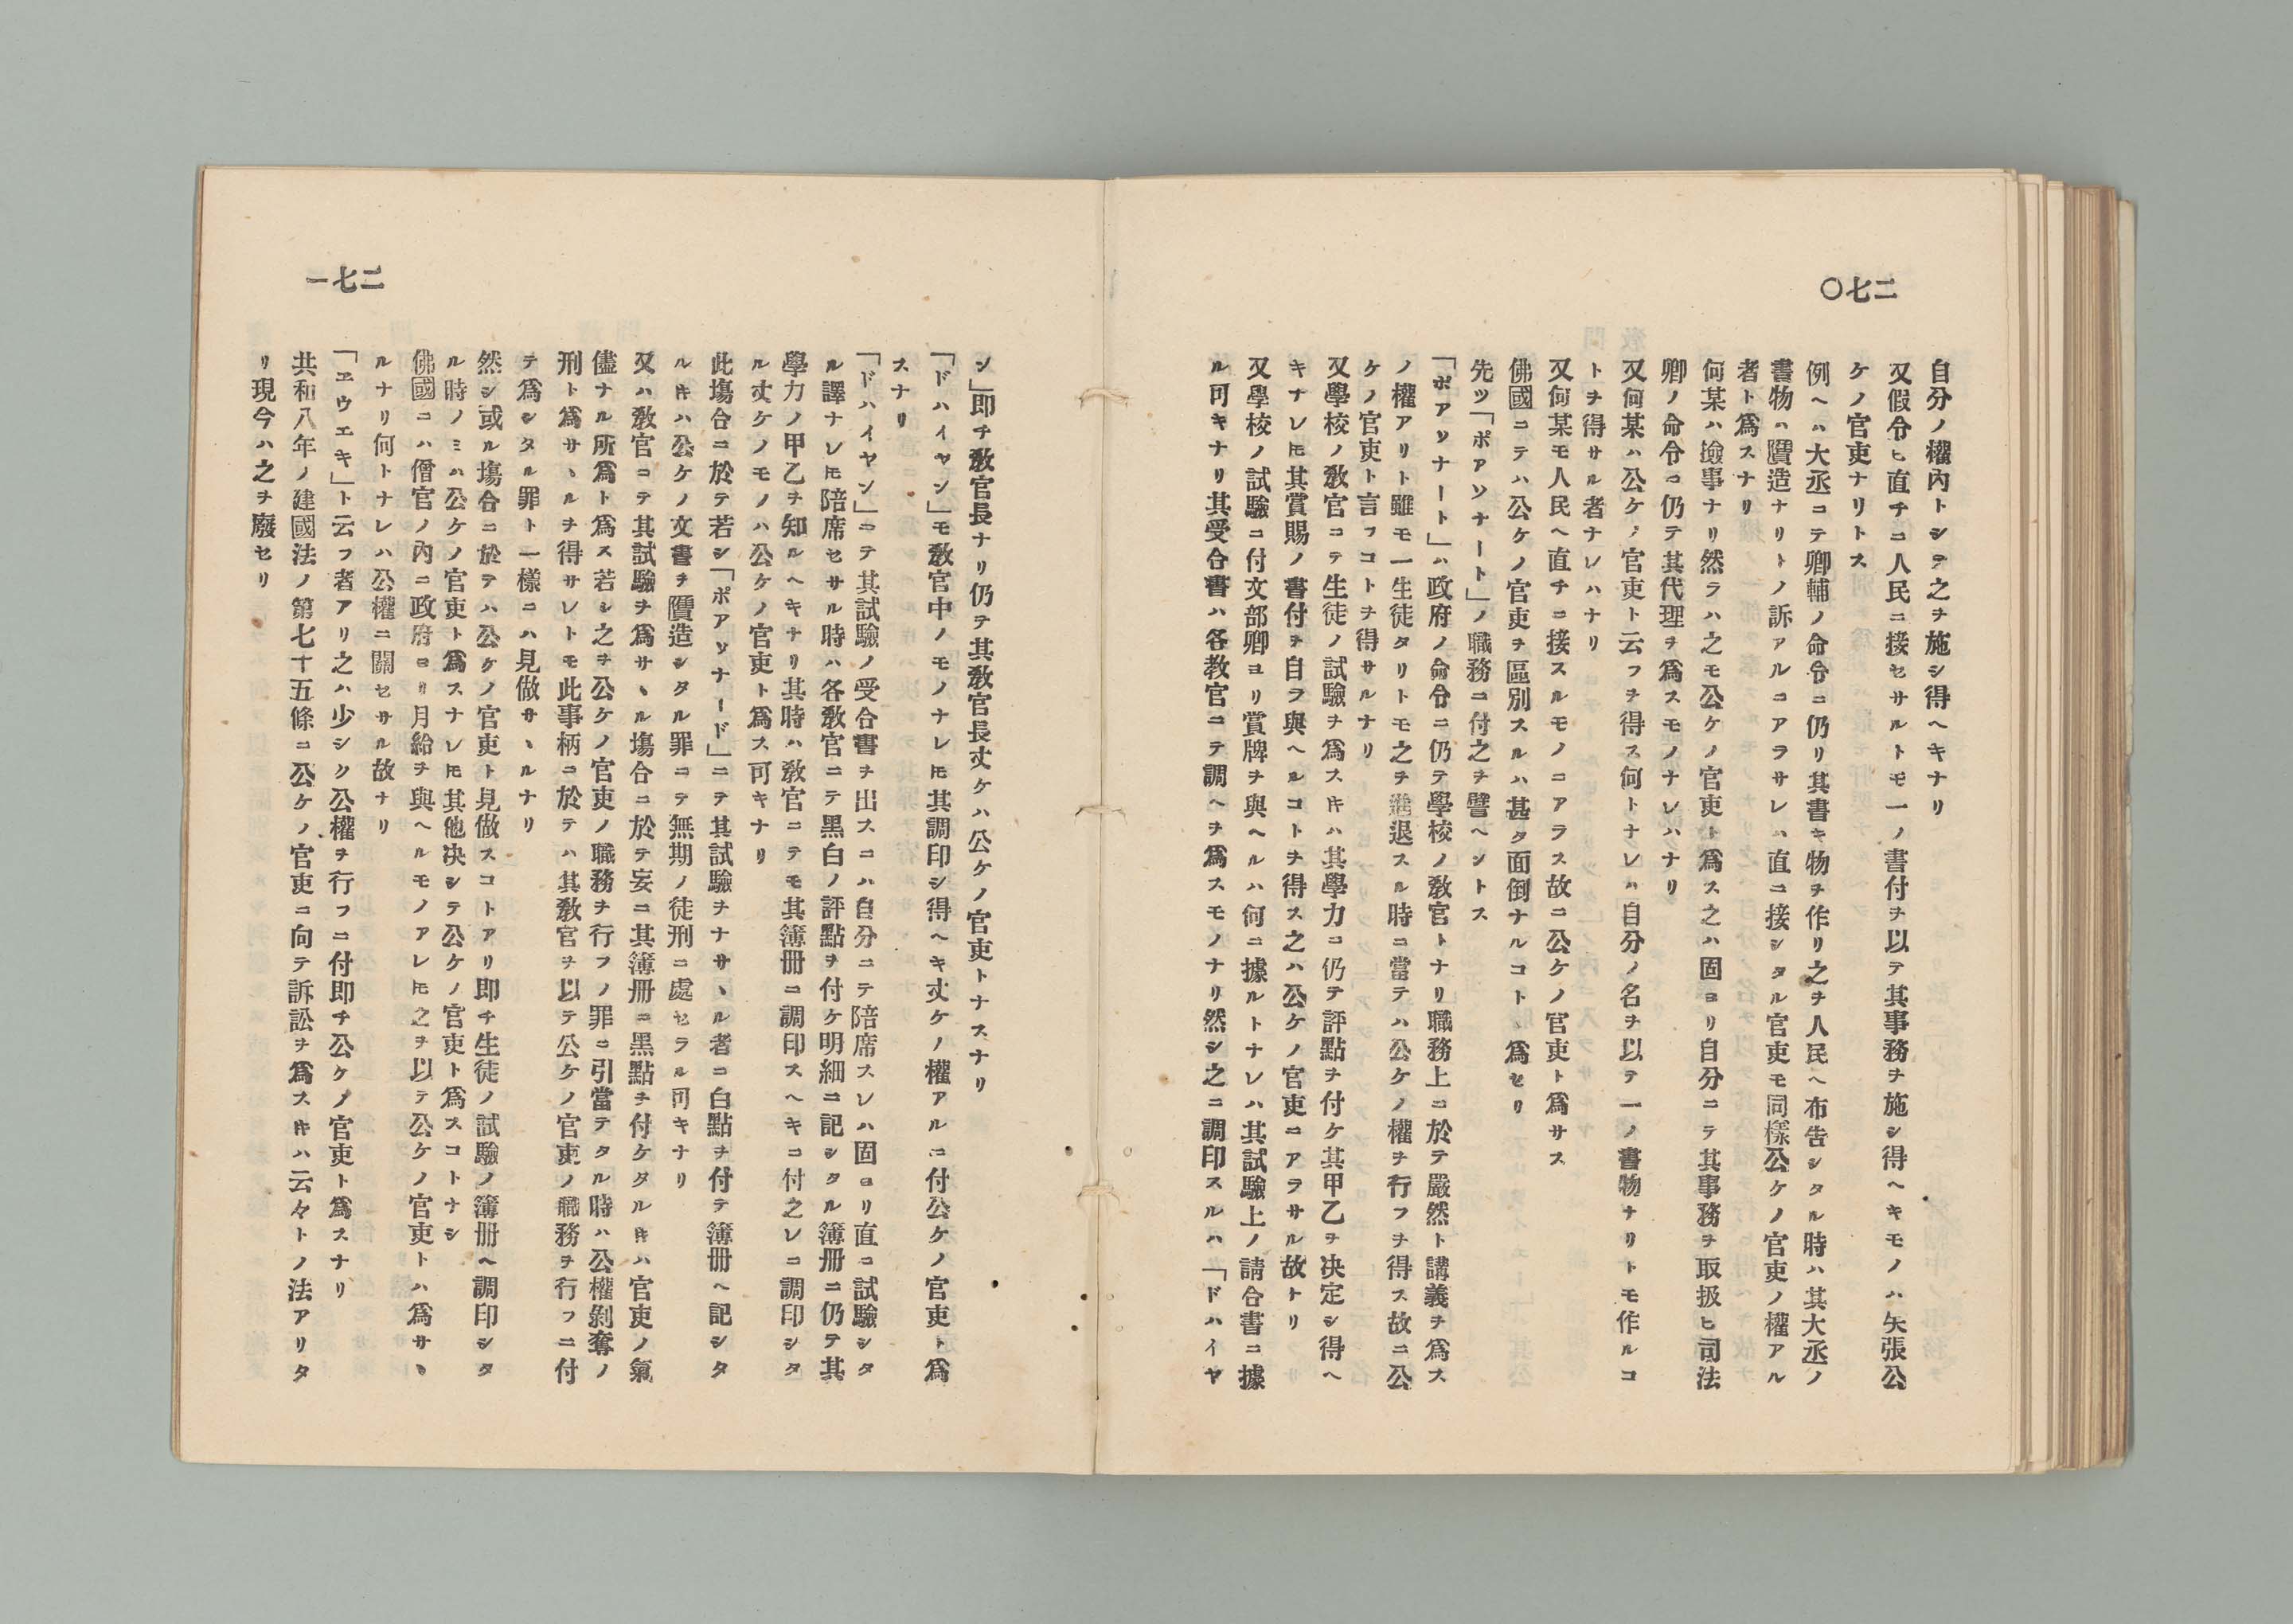 二七〇
自分ノ權內トシテ之ヲ施シ得ヘキナリ
又假令ヒ直チニ人民ニ接セサルトモ一ノ書付ヲ以テ其事務ヲ施シ得ヘキモノハ矢張公
ケノ官吏ナリトス
例ヘハ大丞ニテ卿輔ノ命令ニ仍リ其書キ物ヲ作リ之ヲ人民ヘ布吿シタル時ハ其大丞ノ
書物ハ贋造ナリトノ訴アルニアラサレハ直ニ接シタル官吏モ同樣公ケノ官吏ノ權アル
者ト爲スナリ
何某ハ撿事ナリ然ラハ之モ公ケノ官吏ト爲ス之ハ固ヨリ自分ニテ其事務ヲ取扱ヒ司法
卿ノ命令ニ仍テ其代理ヲ爲スモノナレハナリ
又何某ハ公ケノ官吏ト云フヲ得ス何トナレハ自分ノ名ヲ以テ一ノ書物ナリトモ作ルコ
トヲ得サル者ナレハナリ
又何某モ人民ヘ直チニ接スルモノニアラス故ニ公ケノ官吏ト爲サス
佛國ニテハ公ケノ官吏ヲ區別スルハ甚タ面倒ナルコトヽ爲セリ
先ツ「ポアソナート」ノ職務ニ付之ヲ譬ヘントス
「ポアソナート」ハ政府ノ命令ニ仍テ學校ノ敎官トナリ職務上ニ於テ嚴然ト講義ヲ爲ス
ノ權アリト雖モ一生徒タリトモ之ヲ進退スル時ニ當テハ公ケノ權ヲ行フヲ得ス故ニ公
ケノ官吏ト言フコトヲ得サルナリ
又學校ノ敎官ニテ生徒ノ試驗ヲ爲スキハ其學力ニ仍テ評點ヲ付ケ其甲乙ヲ决定シ得ヘ
キナレ𪜈其賞賜ノ書付ヲ自ラ與ヘルコトヲ得ス之ハ公ケノ官吏ニアラサル故ナリ
又學校ノ試驗ニ付文部卿ヨリ賞牌ヲ與ヘルハ何ニ據ルトナレハ其試驗上ノ請合書ニ據
ル可キナリ其受合書ハ各敎官ニテ調ヘヲ爲スモノナリ然シ之ニ調印スルハ「ドハイヤ
二七一
ン」即チ敎官長ナリ仍テ其敎官長丈ケハ公ケノ官吏トナスナリ
「ドハイヤン」モ敎官中ノモノナレ𪜈其調印シ得ヘキ丈ケノ權アルニ付公ケノ官吏ト爲
スナリ
「ドハイヤン」ニテ其試驗ノ受合書ヲ出スニハ自分ニテ陪席スレハ固ヨリ直ニ試驗シタ
ル譯ナレ𪜈陪席セサル時ハ各敎官ニテ黑白ノ評點ヲ付ケ明細ニ記シタル簿冊ニ仍テ其
學力ノ甲乙ヲ知ルヘキナリ其時ハ敎官ニテモ其簿冊ニ調印スヘキニ付之レニ調印シタ
ル丈ケノモノハ公ケノ官吏ト爲ス可キナリ
此塲合ニ於テ若シ「ポアソナード」ニテ其試驗ヲナサヽル者ニ白點ヲ付テ簿冊ヘ記シタ
ルキハ公ケノ文書ヲ贋造シタル罪ニテ無期ノ徒刑ニ處セラル可キナリ
又ハ敎官ニテ其試驗ヲ爲サヽル塲合ニ於テ妄ニ其簿冊ニ黑點ヲ付ケタルキハ官吏ノ氣
儘ナル所爲ト爲ス若シ之ヲ公ケノ官吏ノ職務ヲ行フノ罪ニ引當テタル時ハ公權剝奪ノ
刑ト爲サヽルヲ得サレトモ此事柄ニ於テハ其敎官ヲ以テ公ケノ官吏ノ職務ヲ行フニ付
テ爲シタル罪ト一樣ニハ見做サヽルナリ
然シ或ル塲合ニ於テハ公ケノ官吏ト見做スコトアリ即チ生徒ノ試驗ノ簿冊ヘ調印シタ
ル時ノミハ公ケノ官吏ト爲スナレ𪜈其他决シテ公ケノ官吏ト爲スコトナシ
佛國ニハ僧官ノ內ニ政府ヨリ月給ヲ與ヘルモノアレ𪜈之ヲ以テ公ケノ官吏トハ爲サヽ
ルナリ何トナレハ公權ニ關セサル故ナリ
「ヱウエキ」ト云フ者アリ之ハ少シク公權ヲ行フニ付即チ公ケノ官吏ト爲スナリ
共和八年ノ建國法ノ第七十五條ニ公ケノ官吏ニ向テ訴訟ヲ爲スキハ云々トノ法アリタ
リ現今ハ之ヲ廢セリ